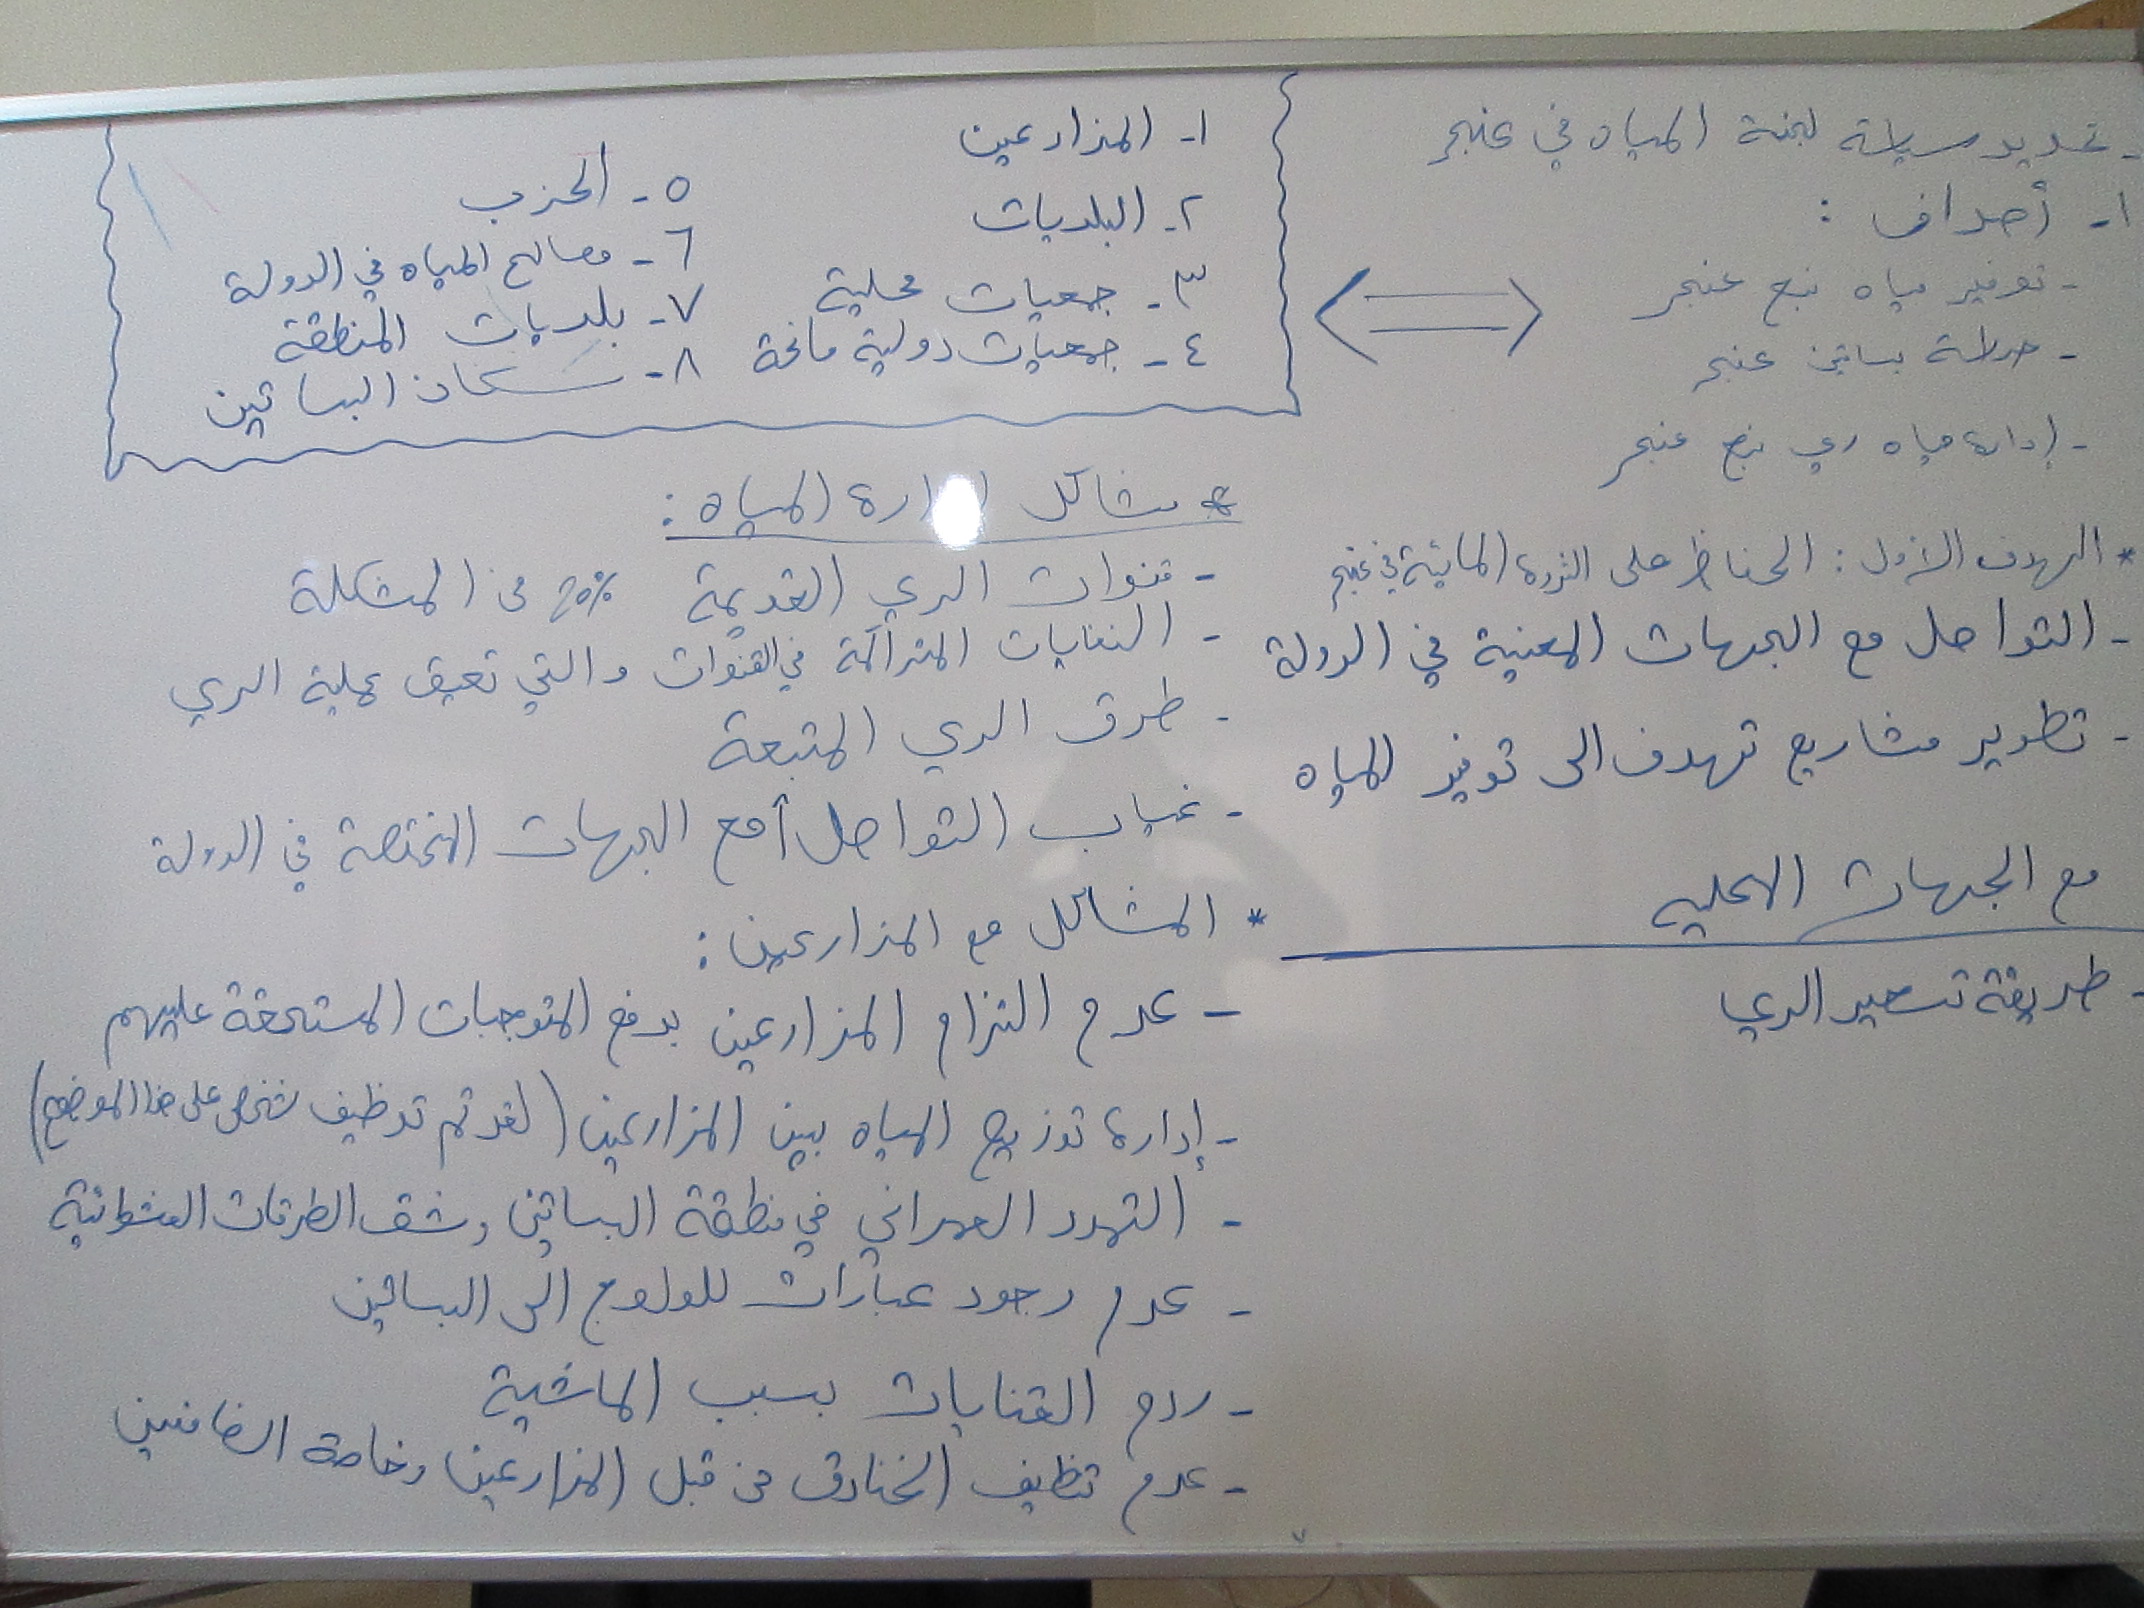 - تحديد سياسة لجنة المياه في عنجر
١- أهداف :
- توفير مياه نبع عنجر
- بساتين عنجر
- إدارة مياه ري نبع عنجر
* الهدف الأول : الحفاظ على الثروة المائية في عنجر
- التواصل مع الجهات المعنية في الدولة
- تطوير مشاريع تهدف الى توفير المياه
مع الجهات المحلية
- طريقة تسعير الري
١- المزارعين
٢- البلديات
٣- جمعيات محلية
٤- جمعيات دولية مانحة
٥- الحزب
٦- مصالح المياه في الدولة
٧- بلديات المنطقة
٨- سكان البساتين
* مشاكل ادارة المياه :
- قنوات الري القديمة من المشكلة
- النفايات المتراكمة في القنوات والتي تعيق عملية الري
- طرق الري المتبعة
- غياب التواصل مع الجهات المختصة في الدولة
* المشاكل مع المزارعين :
- عدم التزام المزارعين بدفع المتوجبات المستحقة عليهم
- إدارة توزيع المياه بين المزارعين (لقد تم توظيف شخص على هذا الموضوع)
- التمدد العمراني في منطقة البساتين وشق الطرقات العشوائية
- عدم وجود عبارات للولوج الى البساتين
- ردم القنايات بسبب الماشية
- عدم تنظيف الخنادق من قبل المزارعين وخاصة الضامنين